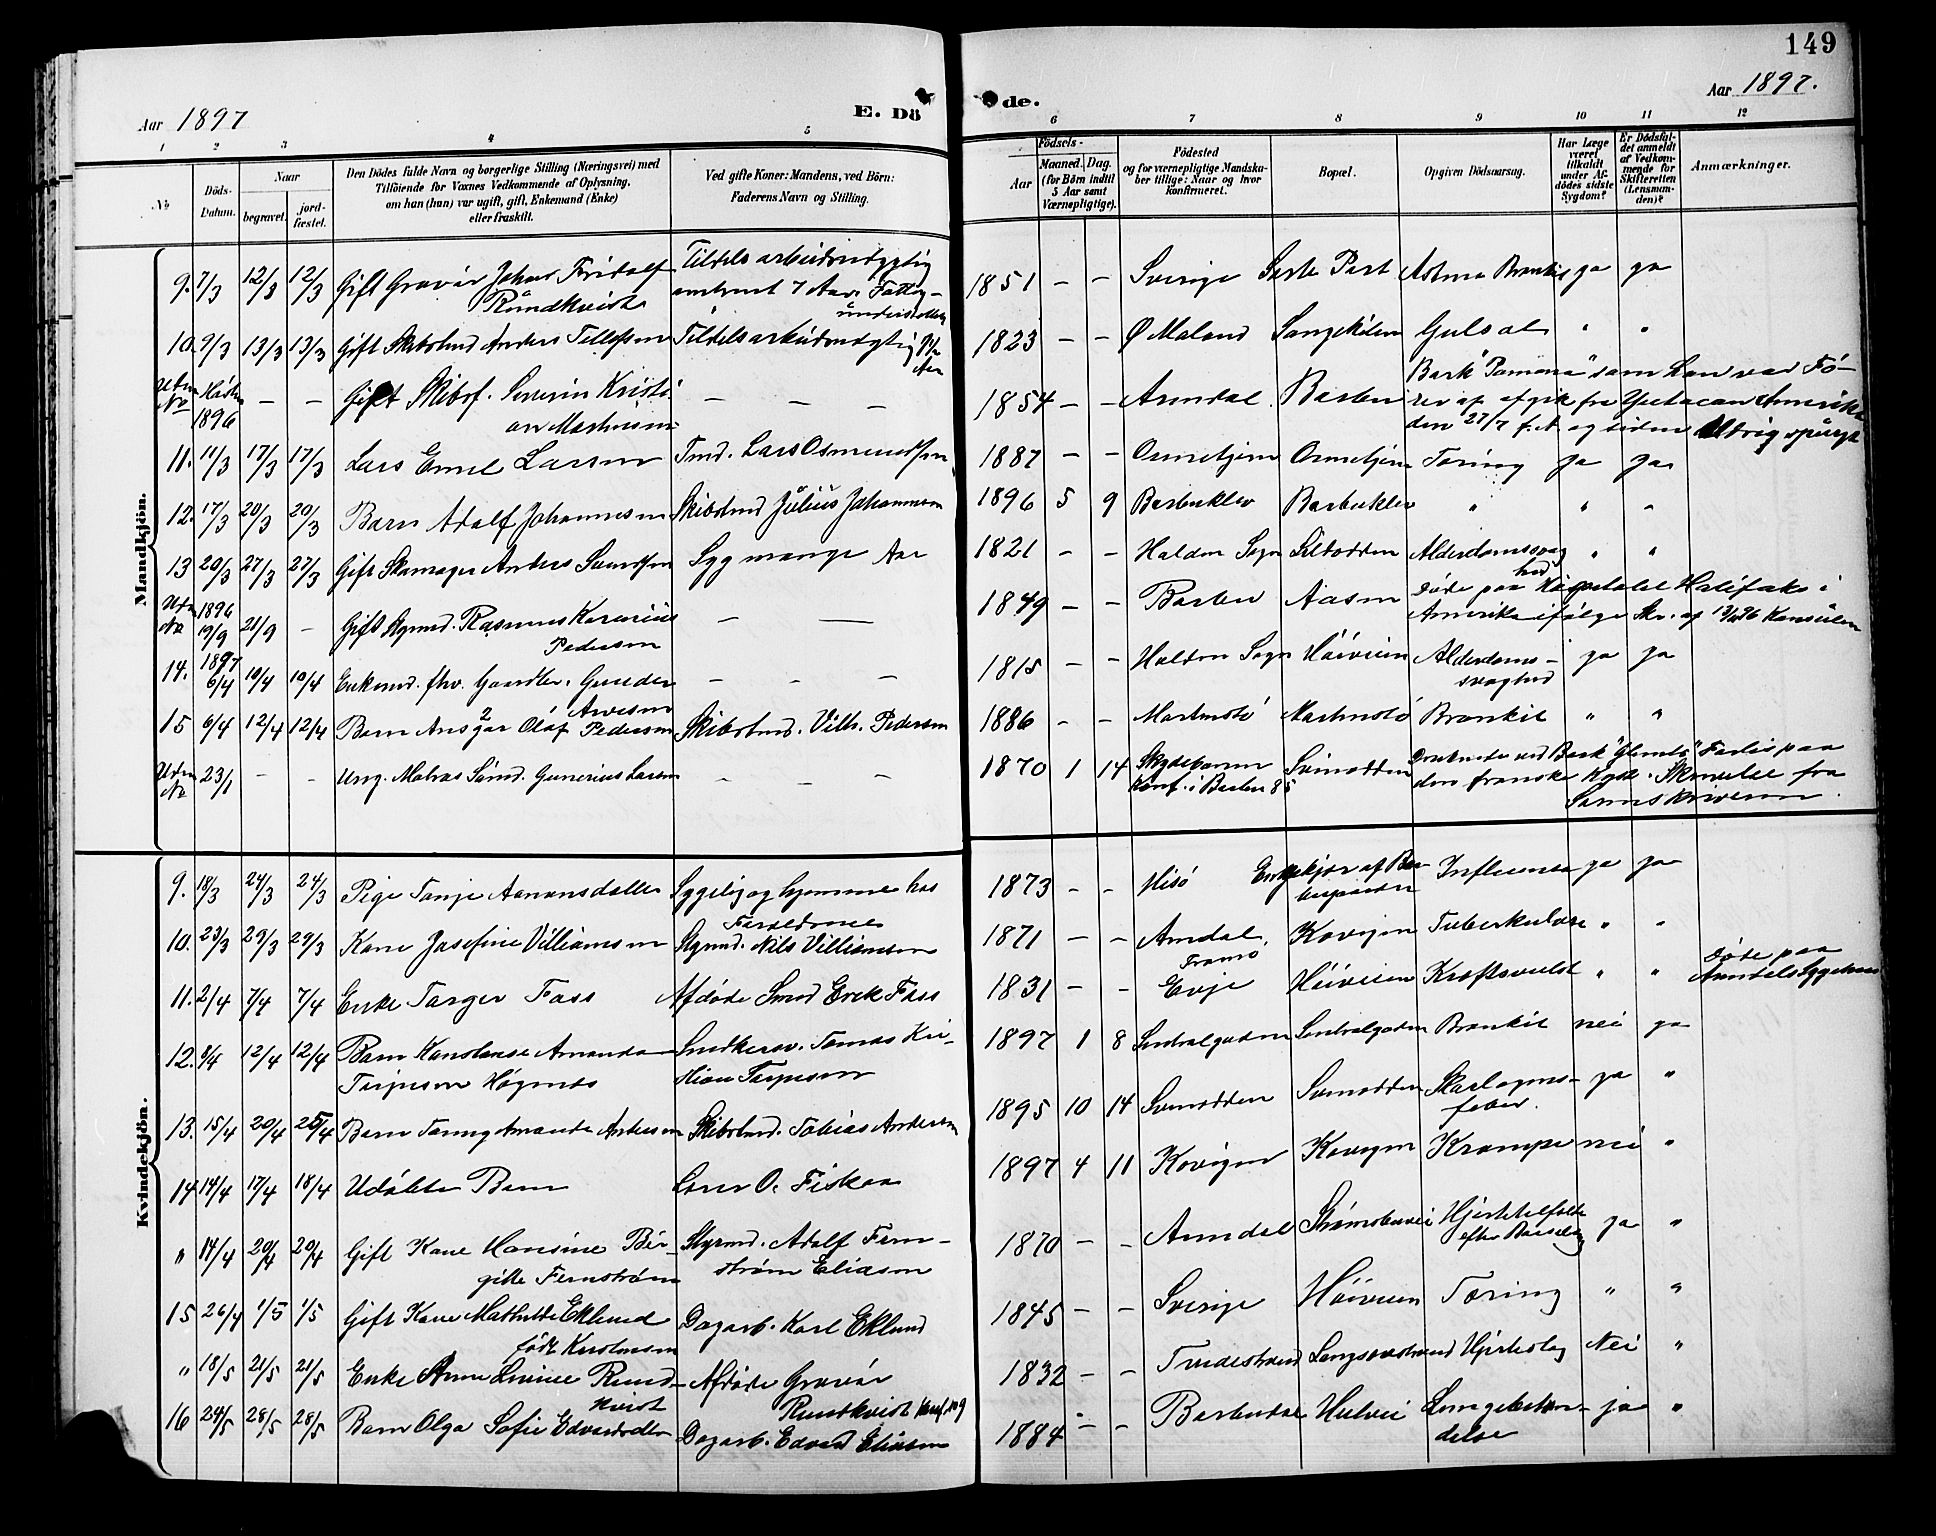 149
Aar 1897
E. Dö de.
Aar 1897.
1 2 3 4 5 6 7 8 9 10 11 12
No
Döds-Datum.
Naar
begravet.
jord-fæstet.
Den Dödes fulde Navn og borgerlige Stilling (Næringsvei) med
Tilföiende for Voxnes Vedkommende af Oplysning,
om han (hun) var ugift, gift, Enkemand (Enke)
eller fraskilt.
Ved gifte Koner: Mandens, ved Börn:
Faderens Navn og Stilling.
Födsels-
Aar
Maaned. Dag.
(for Börn indtil
5 Aar samt
Værnepligtige).
Födested
og for værnepligtige Mandska-
ber tillige: Naar og hvor
konfirmeret.
Bopæl.
Opgiven Dödsaarsag.
Har Læge
været
tilkaldt
under Af-
dödes sidste
Sygdom?
Er Dödsfal-
det anmeldt
af Vedkom-
mende for
Skifteretten
(Lensman-
den)?
Anmærkninger.
Mandkjön.
9. 7/3 12/3 12/3 Gift Gravör Johan Fridolf Rundkvist Tildels arbeidsudygtig omtrent 7 Aar. Fattig-understøttet 1851 – – Sverige Astma Bronkit ja ja
10. 9/3 13/3 13/3 Gift Skibstmd Anders Tellefsen Tildels arbeidsudygtig 1823 – – Ø Moland Songekilen Gulsot " "
Uden No Høsten 1896 – – Gift Skibsf. Severin Kristian Martinsen – – – 1854 – – Arendal Barbu Bark "Pomona" som han var Fö-
rer af afgik fra Yucatan Amerika
den 27/7 f. A. og siden Aldrig spurgt
11. 11/3 17/3 17/3 Lars Emil Larsen Tmd. Lars Osmundsen 1887 – – Ormetjern Ormetjern Tæring ja ja
12. 17/3 20/3 20/3 Barn Adolf Johannesen Skibstmd Julius Johannesen 1896 5 9 Barbuklev Barbuklev " " "
13 20/3 27/3 27/3 Gift Skomager Anders Svendsen Syg mange Aar 1821 – – Holden Sogn Sildodden Alderdomssvaghed " "
Uden No 1896 19/9 21/9 – Gift Stymd. Rasmus Kornerius Pedersen – – 1849 – – Barbu Aasen Døde paa Hospitalet Halifaks i
Amerika ifølge Skr. af Konsulen
14. 1897 6/4 10/4 10/4 Enkemd. fhv. Handler. Gunder Arvesen – – – 1815 – – Holden Sogn Høiveien Alderdoms-svaghed ja ja
15 6/4 12/4 12/4 Barn Ansgar Olaf Pedersen Skibstmd. Vilh. Pedersen 1886 – – Martensø Martensø Bronkit " "
Uden No 23/1 – – Ung. Matros Sømd. Gunerius Larsen – – – 1870 1 14 Skydebanen Konf. i Barbu 85 Svinodden Druknede ved Bark "Glentø" Forlis paa
den franske Kyst. Skrivelse fra
Sorenskriveren.
Kvindekjön.
9. 18/3 24/3 24/3 Pige Tonje Aanonsdatter Sygelig og hjemme hos Forældrene 1873 – – Hisö Influensa ja ja
10. 23/3 29/3 29/3 Kone Josefine Villiamsen Stymd. Nils Villiamsen 1871 – – Arendal, Tromø Kovigen Tuberkulose " "
11. 2/4 7/4 7/4 Enke Torger Foss Afdøde Smed Erik Foss 1831 – – Evje Høiveien Kræftsvulst " " Døde paa
Arendals Sygehus
12. 8/4 12/4 12/4 Barn Konstanse Amanda Terjesen Högenes Snedkersv. Tomas Kri-stian Terjesen 1897 1 8 Sentralgaden Sentralgaden Bronkit nei ja
13. 15/4 20/4 25/4 Barn Fanny Amanda Andersen Skibstmd. Tobias Andersen 1895 10 14 Svinodden Svinodden Skarlagens-feber. ja "
14 14/4 17/4 18/4 Udøbte Barn Lars O. Fiskaa 1897 4 11 Kovigen Kovigen Krampe nei "
" 14/4 20/4 20/4 Gift Kone Hansine Bir-gitte Fernstrøm Styrmd. Adolf Fern-strøm Eliasen 1870 – – Arendal Strømsbuvei Hjertetilfælde efter Barselseng ja "
15 26/4 1/5 1/5 Gift Kone Mathilde Eklund født Karstensen Dagarb. Karl Eklund 1845 – – Sverige Høiveien Tæring " "
" 18/5 21/5 21/5 Enke Anne Lovise Rund-kvist Afdøde Gravör Rundkvist Konf. No 9 1832 – – Tvedestrand Langsæstrand Hjerteslag Nei "
16 24/5 28/5 28/5 Barn Olga Sofie Edvardsdtr Dagarb. Edvard Eliasen 1884 – – Barbudal Hulvei Lungebeten-delse ja "